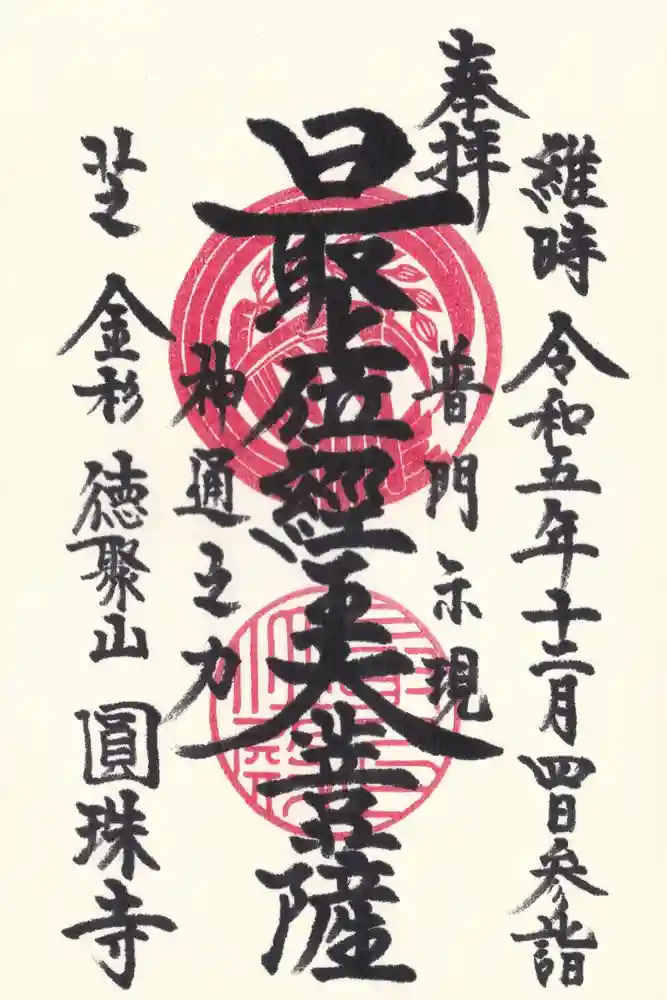 奉拝
維時 令和五年十二月四日参詣
普門示現
最上位經王大菩薩
神通之力
芝 金杉 徳聚山 圓珠寺